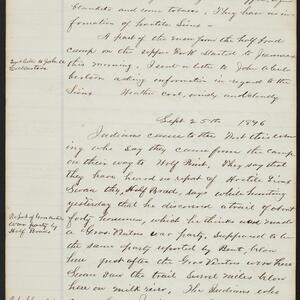 blankets and some tobacco. They have no in-
formation of hostile Sioux
A part of the men from the half breed
camp on the upper started to
this morning. I sent a letter to John
asking information in regard to the
Sioux Weather cool, windy and cloudy
Sept. 25th 1876
Indians came to the Post this morn-
ing who say they came from the camp
on their way to Wolf Point. They say that
they have heard no report of Hostile Sioux
the Half Breed, says while hunting
yesterday that he discovered a trail of about
forty horsemen, which he thinks was made
a Gros Ventres war party, Supposed to be
the same party reported by Bent, below
here just after the Gros Ventres were here
the trail Several miles below
here on milk river. The Indians who
Sept letter to John
Report of Gros Ventres
War party by
Half Breeds